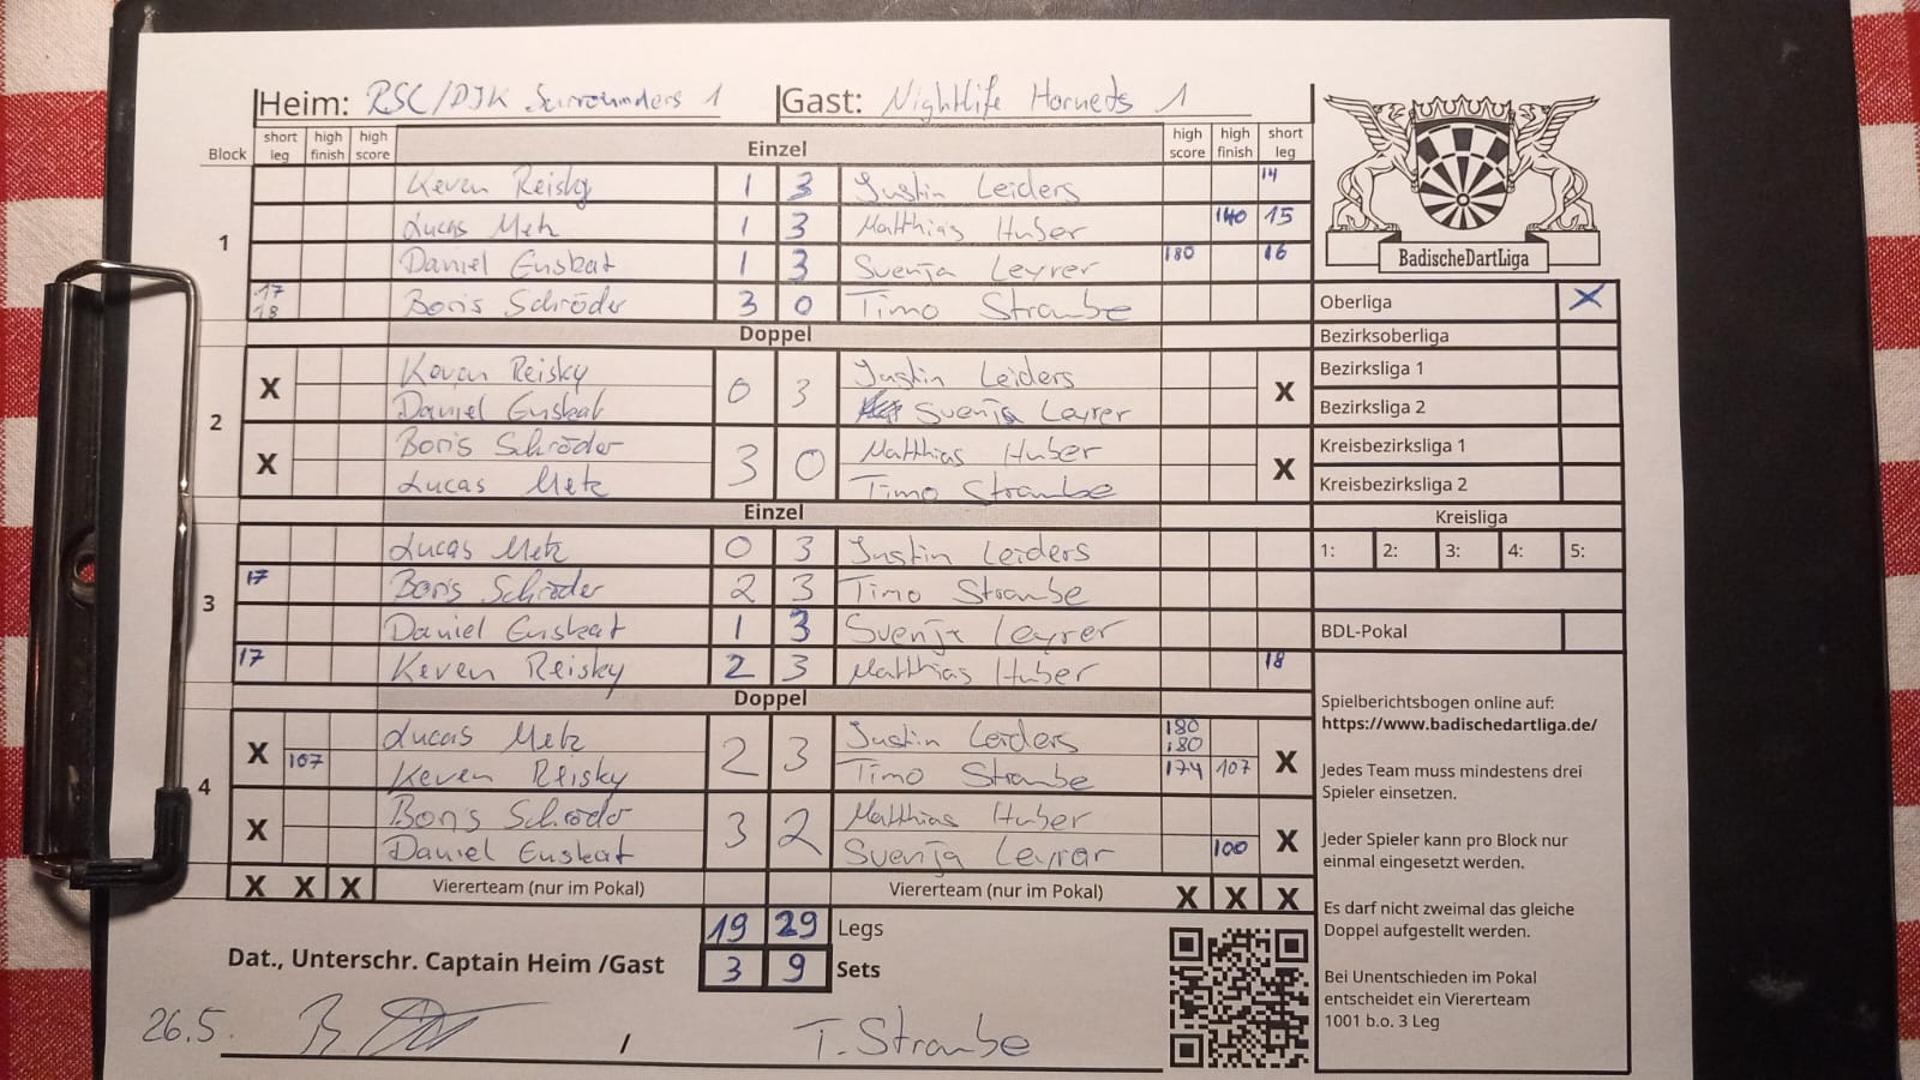 Heim: RSC/DJK Surrounders 1 Gast: Nightlife Hornets 1
Block short leg high finish high score Einzel high score high finish short leg
1
Keven Reisky 1 3 Justin Leiders 14
Lucas Metz 1 3 Matthias Huber 140 15
Daniel Enskat 1 3 Svenja Leyrer 180 16
17 18 Boris Schröder 3 0 Timo Straube
Doppel
2
X Keven Reisky 0 3 Justin Leiders X
Daniel Enskat Svenja Leyrer
X Boris Schröder 3 0 Matthias Huber X
Lucas Metz Timo Straube
Einzel
3
Lucas Metz 0 3 Justin Leiders
17 Boris Schröder 2 3 Timo Straube
Daniel Enskat 1 3 Svenja Leyrer
17 Keven Reisky 2 3 Matthias Huber 18
Doppel
4
X Lucas Metz 2 3 Justin Leiders 180 180 X
107 Keven Reisky Timo Straube 174 107
X Boris Schröder 3 2 Matthias Huber X
Daniel Enskat Svenja Leyrer 100
X X X Viererteam (nur im Pokal) Viererteam (nur im Pokal) X X X
19 29 Legs
Dat., Unterschr. Captain Heim /Gast 3 9 Sets
26.5. / T. Straube
BadischeDartLiga
Oberliga X
Bezirksoberliga
Bezirksliga 1
Bezirksliga 2
Kreisbezirksliga 1
Kreisbezirksliga 2
Kreisliga
1: 2: 3: 4: 5:
BDL-Pokal
Spielberichtsbogen online auf:
https://www.badischedartliga.de/
Jedes Team muss mindestens drei
Spieler einsetzen.
Jeder Spieler kann pro Block nur
einmal eingesetzt werden.
Es darf nicht zweimal das gleiche
Doppel aufgestellt werden.
Bei Unentschieden im Pokal
entscheidet ein Viererteam
1001 b.o. 3 Leg